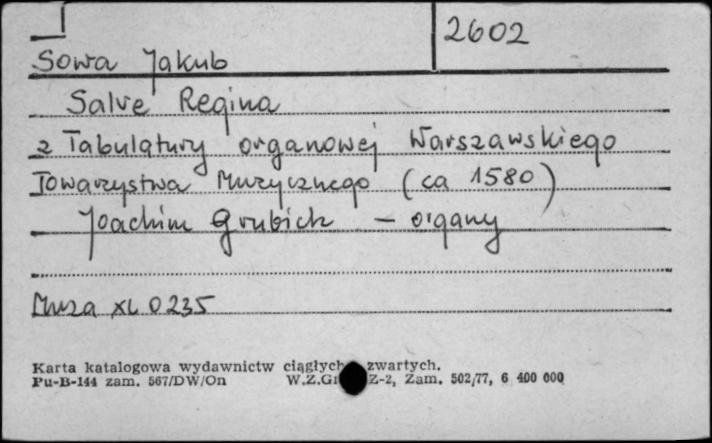 2602
Sowa Jakub
Salve Regina
z Tabulatury organowej Warszawskiego
Towarzystwa Muzycznego (ca 1580)
Joachim Grubich – organy
Muza XL 0235
Karta katalogowa wydawnictw ciągłych zwartych.
Pu-B-144 zam. 567/DW/On W.Z.Gr Z-2, Zam. 502/77, 6 400 000